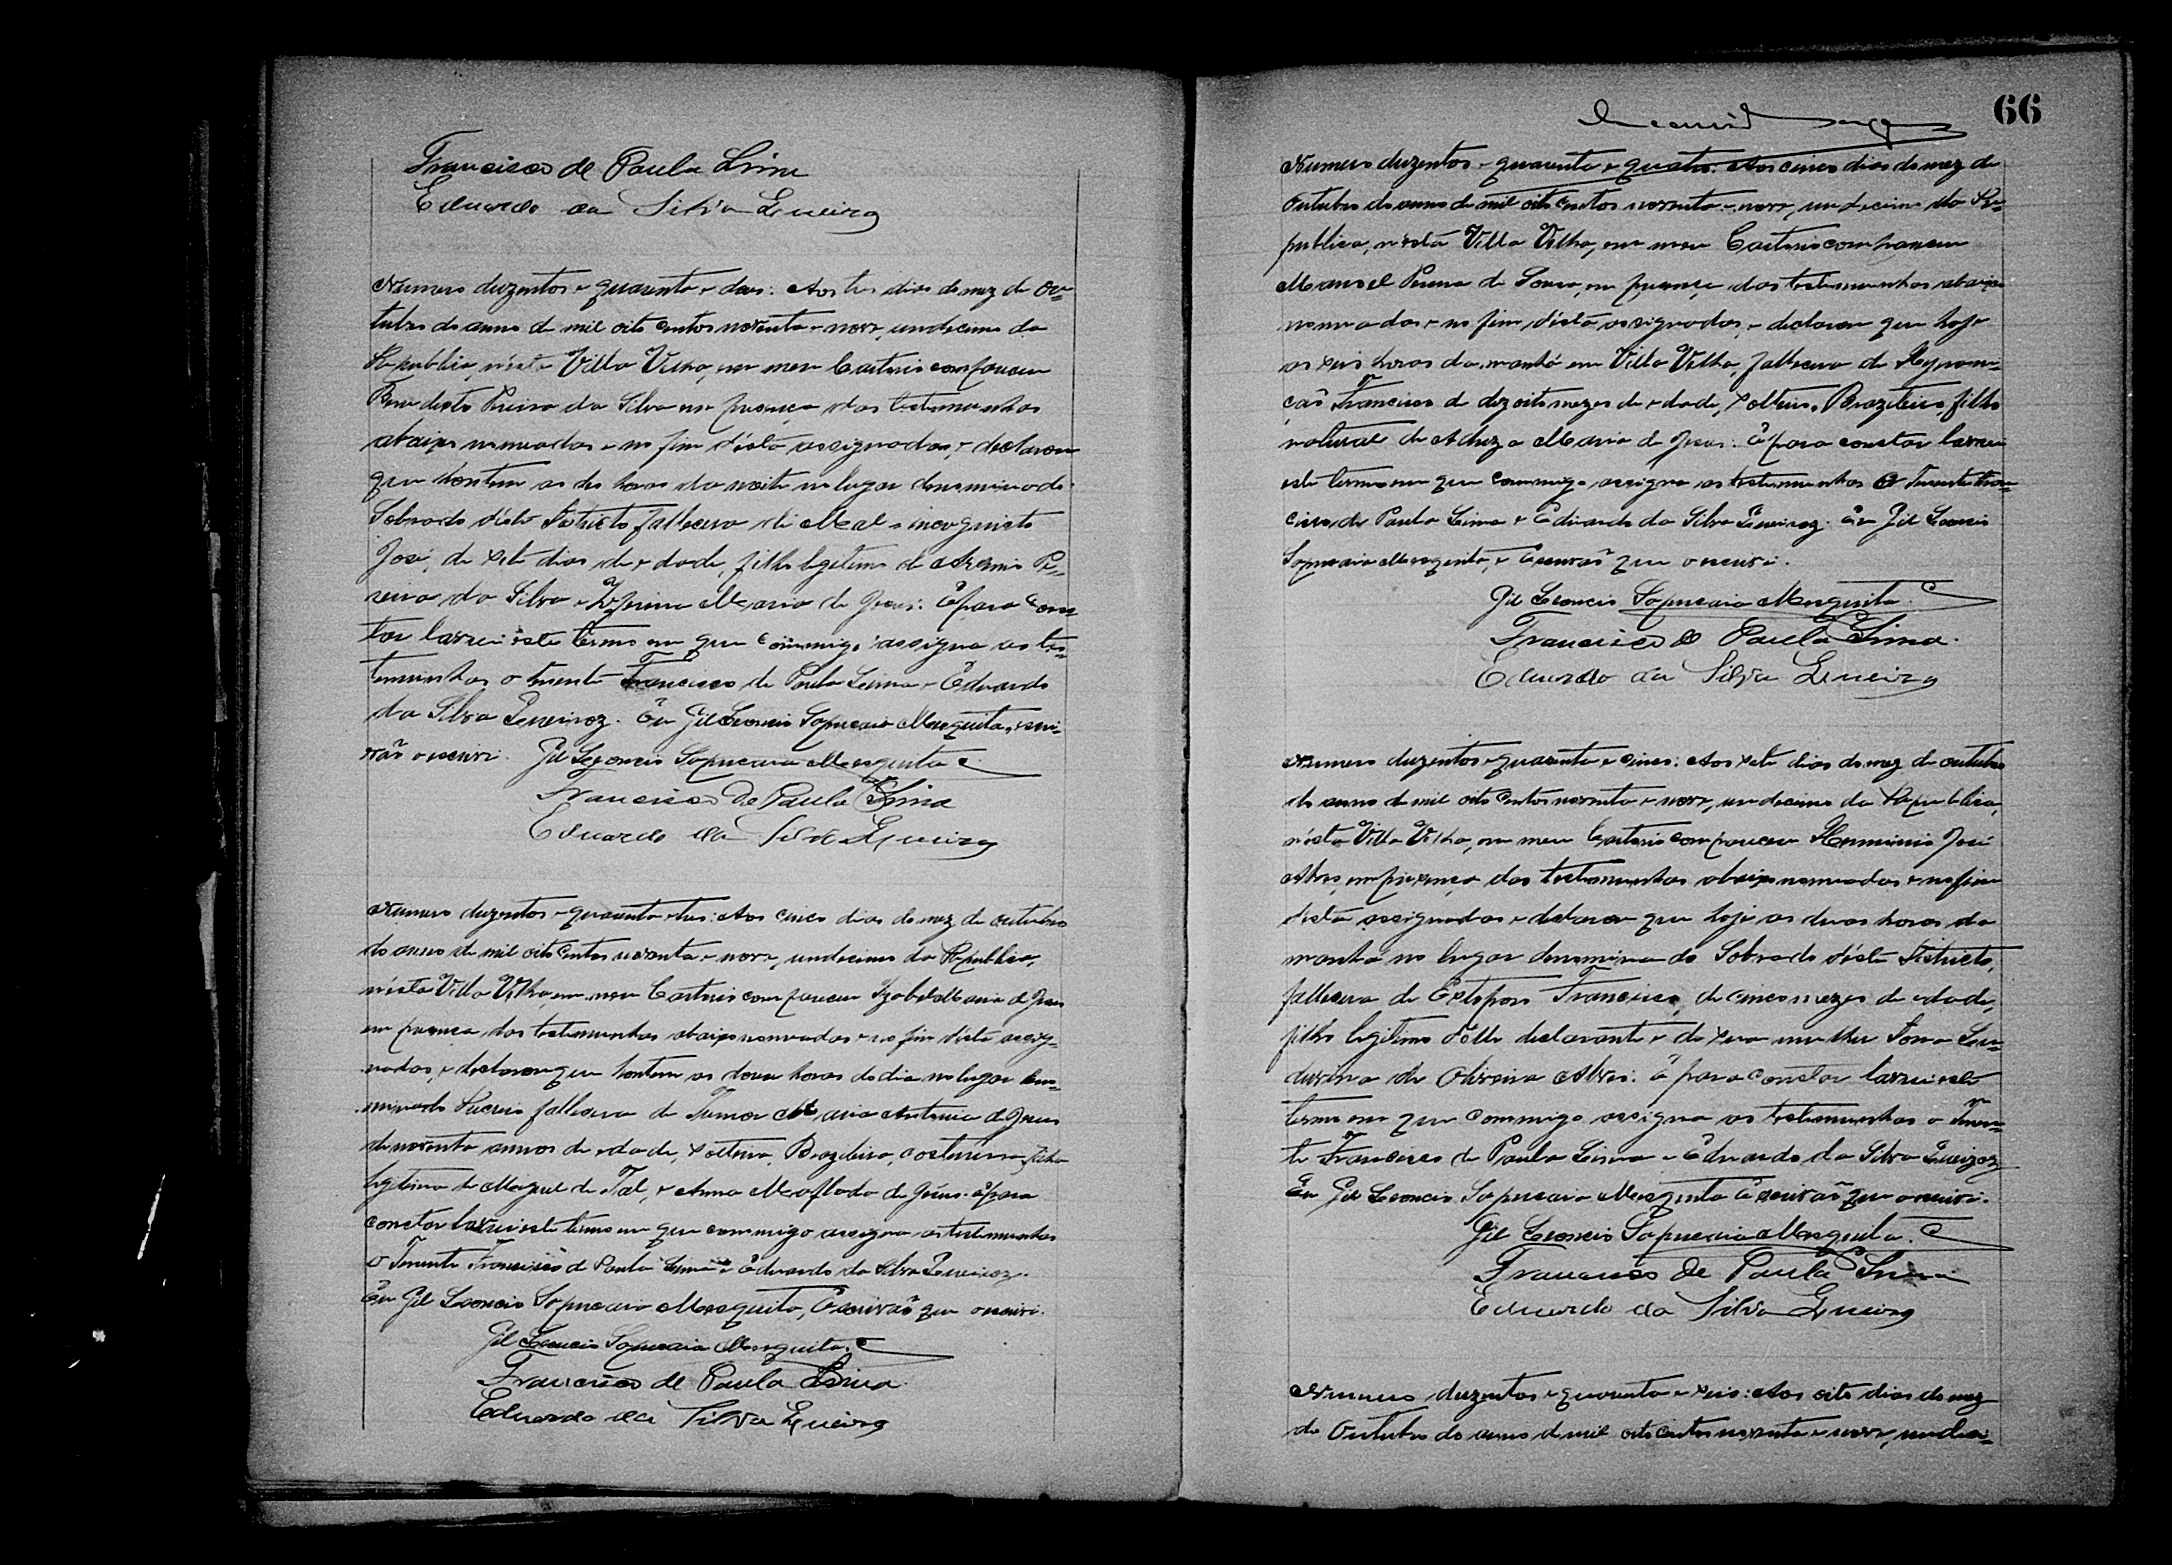 Francisco de Paula Lima
Eduardo da Silva Queiroz
Numero duzentos e quarenta e dous: Aos tres dias do mez de Ou=
tubro do anno de mil oito centos noventa e nove, undecimo da
Republica, nésta Villa Velha, em meu Cartorio compareceu
Benedicto Pereira da Silva em presença das testemunhas
abaixo nomeadas e no fim désta assignadas, e declarou
que hontem as dez horas da noite no lugar denominado
Sobrado désto Districto falleceu de Mal e incognito
José, de sete dias de edade, filho legitimo de Pe=
reira da Silva e Maria de Jesus. E para cons
tar lavrei éste termo em que commigo assigna as tes=
temunhas o tenente Francisco de Paula Lima e Eduardo
da Silva Queiroz. Eu Gil Leoncio Sapucaia Mesquita, escri=
vão o escrivi. Gil Leoncio Sapucaia Mesquita
Francisco de Paula Lima
Eduardo da Silva Queiroz
Numero duzentos e quarenta e tres: Aos cinco dias do mez de outubro
do anno de mil oito centos noventa e nove, undecimo da Republica,
nésta Villa Velha, em meu Cartorio compareceu Izabel Maria de Jesus
em presença das testemunhas abaixo nomeadas e no fim désta assig=
nadas, e declarou que hontem as doze horas do dia no lugar deno=
minado falleceu de Tumor Maria Antonia de Jesus
de noventa annos de edade, solteira, Brazileira, costureira, filha
legitima de Miguel de Tal, e Anna de Jesus. E para
constar lavrei este termo em que commigo assigna as testemunhas
O Tenente Francisco de Paula Lima e Eduardo da Silva Queiroz.
Eu Gil Leoncio Sapucaia Mesquita, Escrivão que o escrivi.
Gil Leoncio Sapucaia Mesquita.
Francisco de Paula Lima
Eduardo da Silva Queiroz
66
Numero duzentos e quarenta e quatro. Aos cinco dias do mez de
Outubro do anno de mil oito centos noventa e nove, undecimo da Re=
publica, nésta Villa Velha, em meu Cartorio compareceu
Manoel Pereira de Souza, em presença das testemunhas abaixo
nomeadas e no fim désta assignadas, e declarou que hoje
as seis horas da manhã em Villa Velha, falleceu de
Francisco de dezoito mezes de edade, solteiro, Brazileiro, filho
natural de Maria de Jesus. E para constar lavrei
este termo em que commigo assigna as testemunhas O Tenente Fran=
cisco de Paula Lima e Eduardo da Silva Queiroz. Eu Gil Leoncio
Sapucaia Mesquita, Escrivão que o escrivi.
Gil Leoncio Sapucaia Mesquita.
Francisco de Paula Lima.
Eduardo da Silva Queiroz
Numero duzentos e quarenta e cinco: Aos sete dias do mez de outubro
do anno de mil oito centos noventa e nove, undecimo da Republica,
nésta Villa Velha, em meu Cartorio compareceu Herminio José
Alves, em presença das testemunhas abaixo nomeadas e no fim
désta assignadas e declarou que hoje as duas horas da
manhã no lugar denominado Sobrado désto Districto,
falleceu de Francisco, de cinco mezes de edade,
filho legitimo délle declarante e de sua mulher Dona
de Oliveira Alves: E para constar lavrei este
termo em que commigo assigna as testemunhas o Tenen=
te Francisco de Paula Lima e Eduardo da Silva Queiroz
Eu Gil Leoncio Sapucaia Mesquita Escrivão que o escrivi.
Gil Leoncio Sapucaia Mesquita.
Francisco de Paula Lima
Eduardo da Silva Queiroz
Numero duzentos e quarenta e seis: Aos oito dias do mez
de Outubro do anno de mil oito centos noventa e nove, undeci=